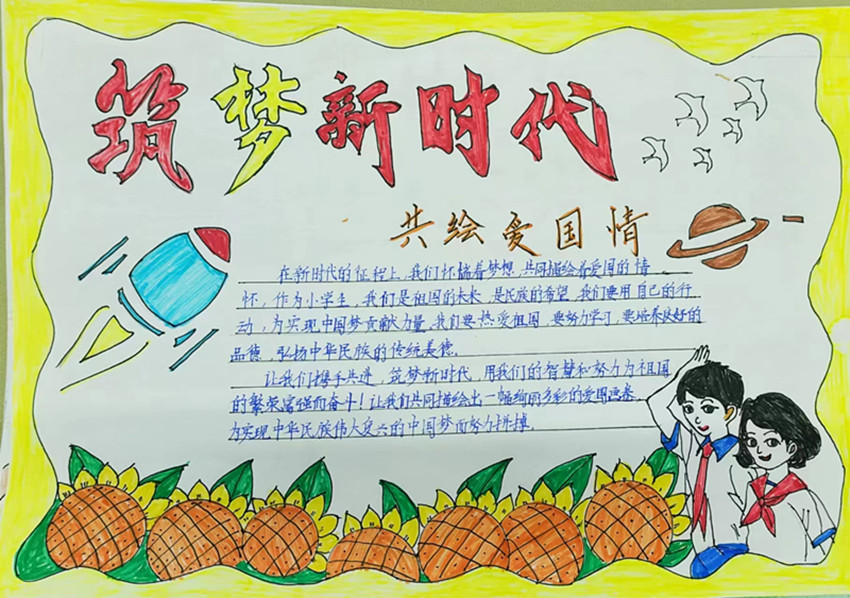 筑梦新时代
共绘爱国情
在新时代的征程上,我们怀揣着梦想,共同描绘着爱国的情
怀,作为小学生,我们是祖国的未来,是民族的希望,我们要用自己的行
动,为实现中国梦贡献力量,我们要热爱祖国,要努力学习,要培养良好的
品德,弘扬中华民族的传统美德.
让我们携手共进,筑梦新时代,用我们的智慧和努力为祖国
的繁荣富强而奋斗!让我们共同描绘出一幅绚丽多彩的爱国画卷.
为实现中华民族伟大复兴的中国梦而努力拼搏.